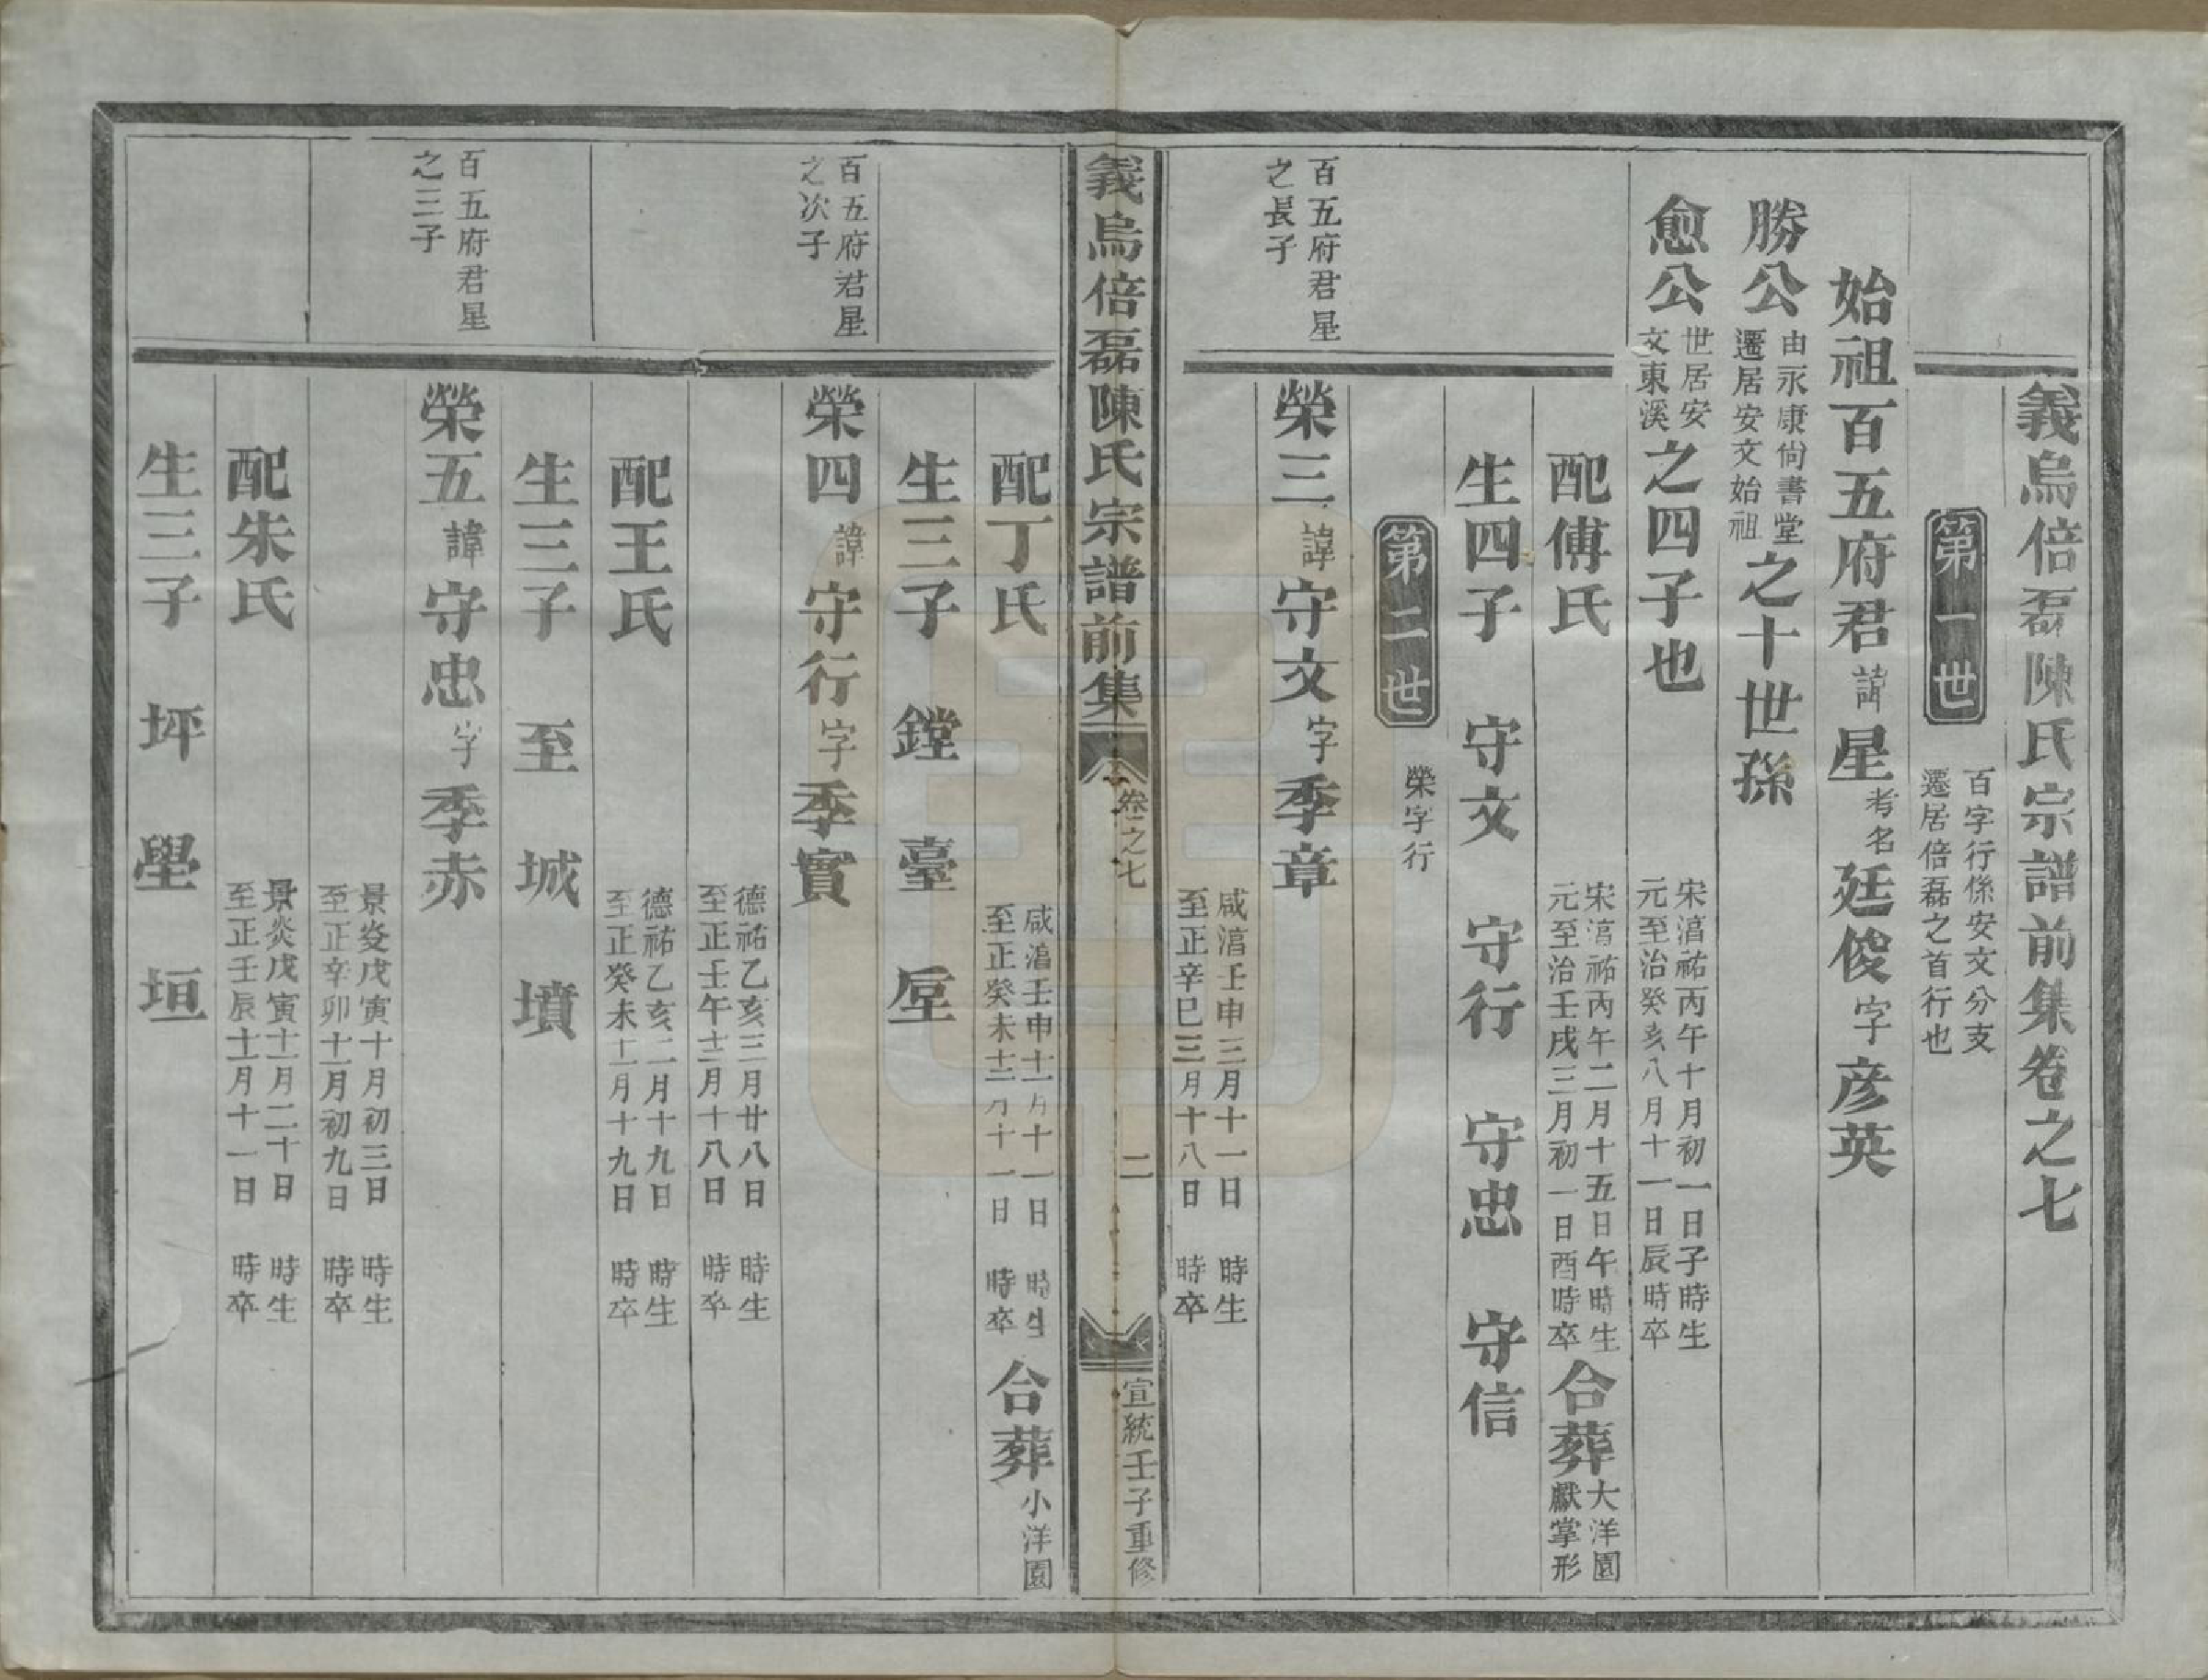 義烏倍磊陳氏宗譜前集卷之七
第一世 百字行係安文分支
遷居倍磊之首行也
始祖百五府君諱星考名廷俊字彦英
勝公由永康尙書堂
遷居安文始祖之十世孫
愈公世居安
文東溪之四子也 宋湻祐丙午十月初一日子時生
元至治癸亥八月十一日辰時卒
配傅氏 宋湻祐丙午二月十五日午時生
元至治壬戌三月初一日酉時卒 合葬大洋園
獻掌形
生四子 守文 守行 守忠 守信
第二世 榮字行
百五府君星
之長子
榮三諱守文字季章
咸湻壬申三月十一日 時生
至正辛巳三月十八日 時卒
義烏倍磊陳氏宗譜前集 卷之七 二 宣統壬子重修
配丁氏 咸湻壬申十二月十一日 時生
至正癸未十二月十一日 時卒 合葬小洋園
生三子 鏜 臺 垕
百五府君星
之次子
榮四諱守行字季實
德祐乙亥三月廿八日 時生
至正壬午十二月十八日 時卒
配王氏 德祐乙亥二月十九日 時生
至正癸未十二月十九日 時卒
生三子 至 城 墳
百五府君星
之三子
榮五諱守忠字季赤
景炎戊寅十月初三日 時生
至正辛卯十二月初九日 時卒
配朱氏 景炎戊寅十二月二十日 時生
至正壬辰十一月十一日 時卒
生三子 坪 壆 垣